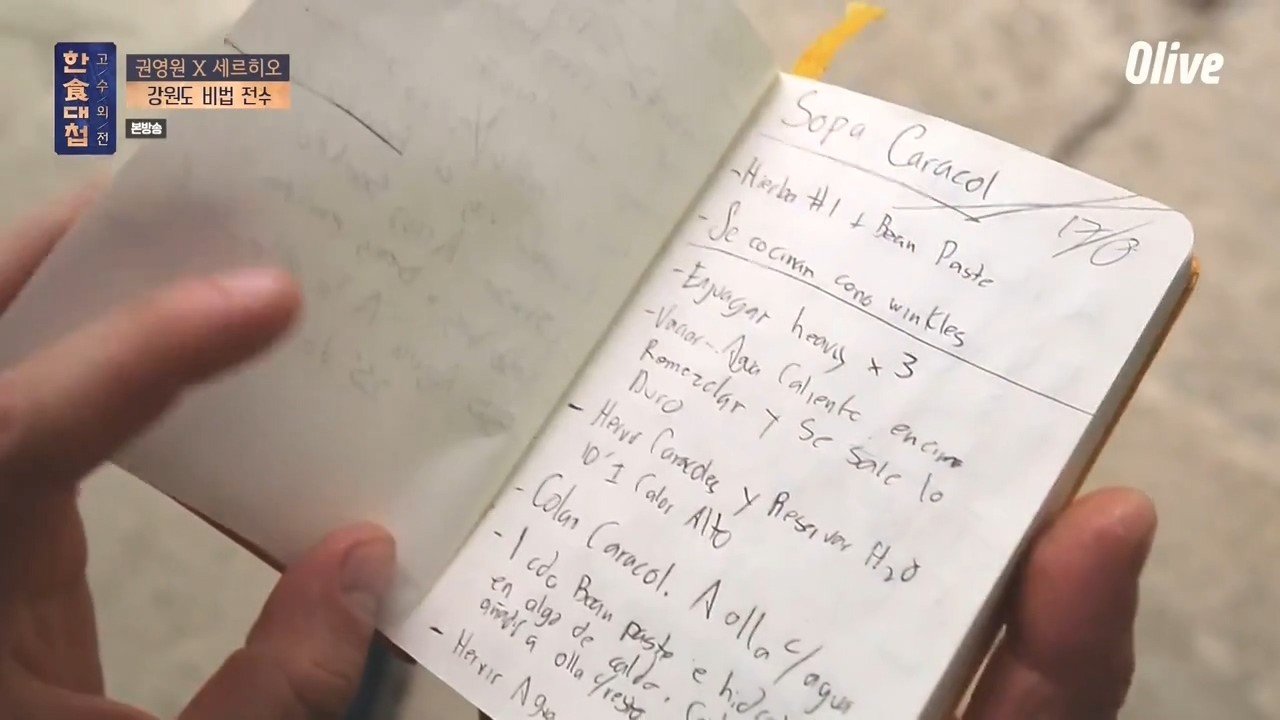 한食대첩
고/수/외/전
권영원 X 세르히오
강원도 비법 전수
본방송
Olive
Sopa Caracol
17/8
- Hierba #1 + Bean Paste
- Se cocinan como winkles
- Enjuagar heavy x 3
- Vaciar... Agua Caliente encima
Remezclar y se sale lo
Duro
- Hervir Caracoles y Reservar H2O
10' 1 Calor Alto
- Colar Caracol. A olla c/agua
- 1 cda Bean paste e
en algo de caldo.
añadir a olla c/resto
- Hervir Agua